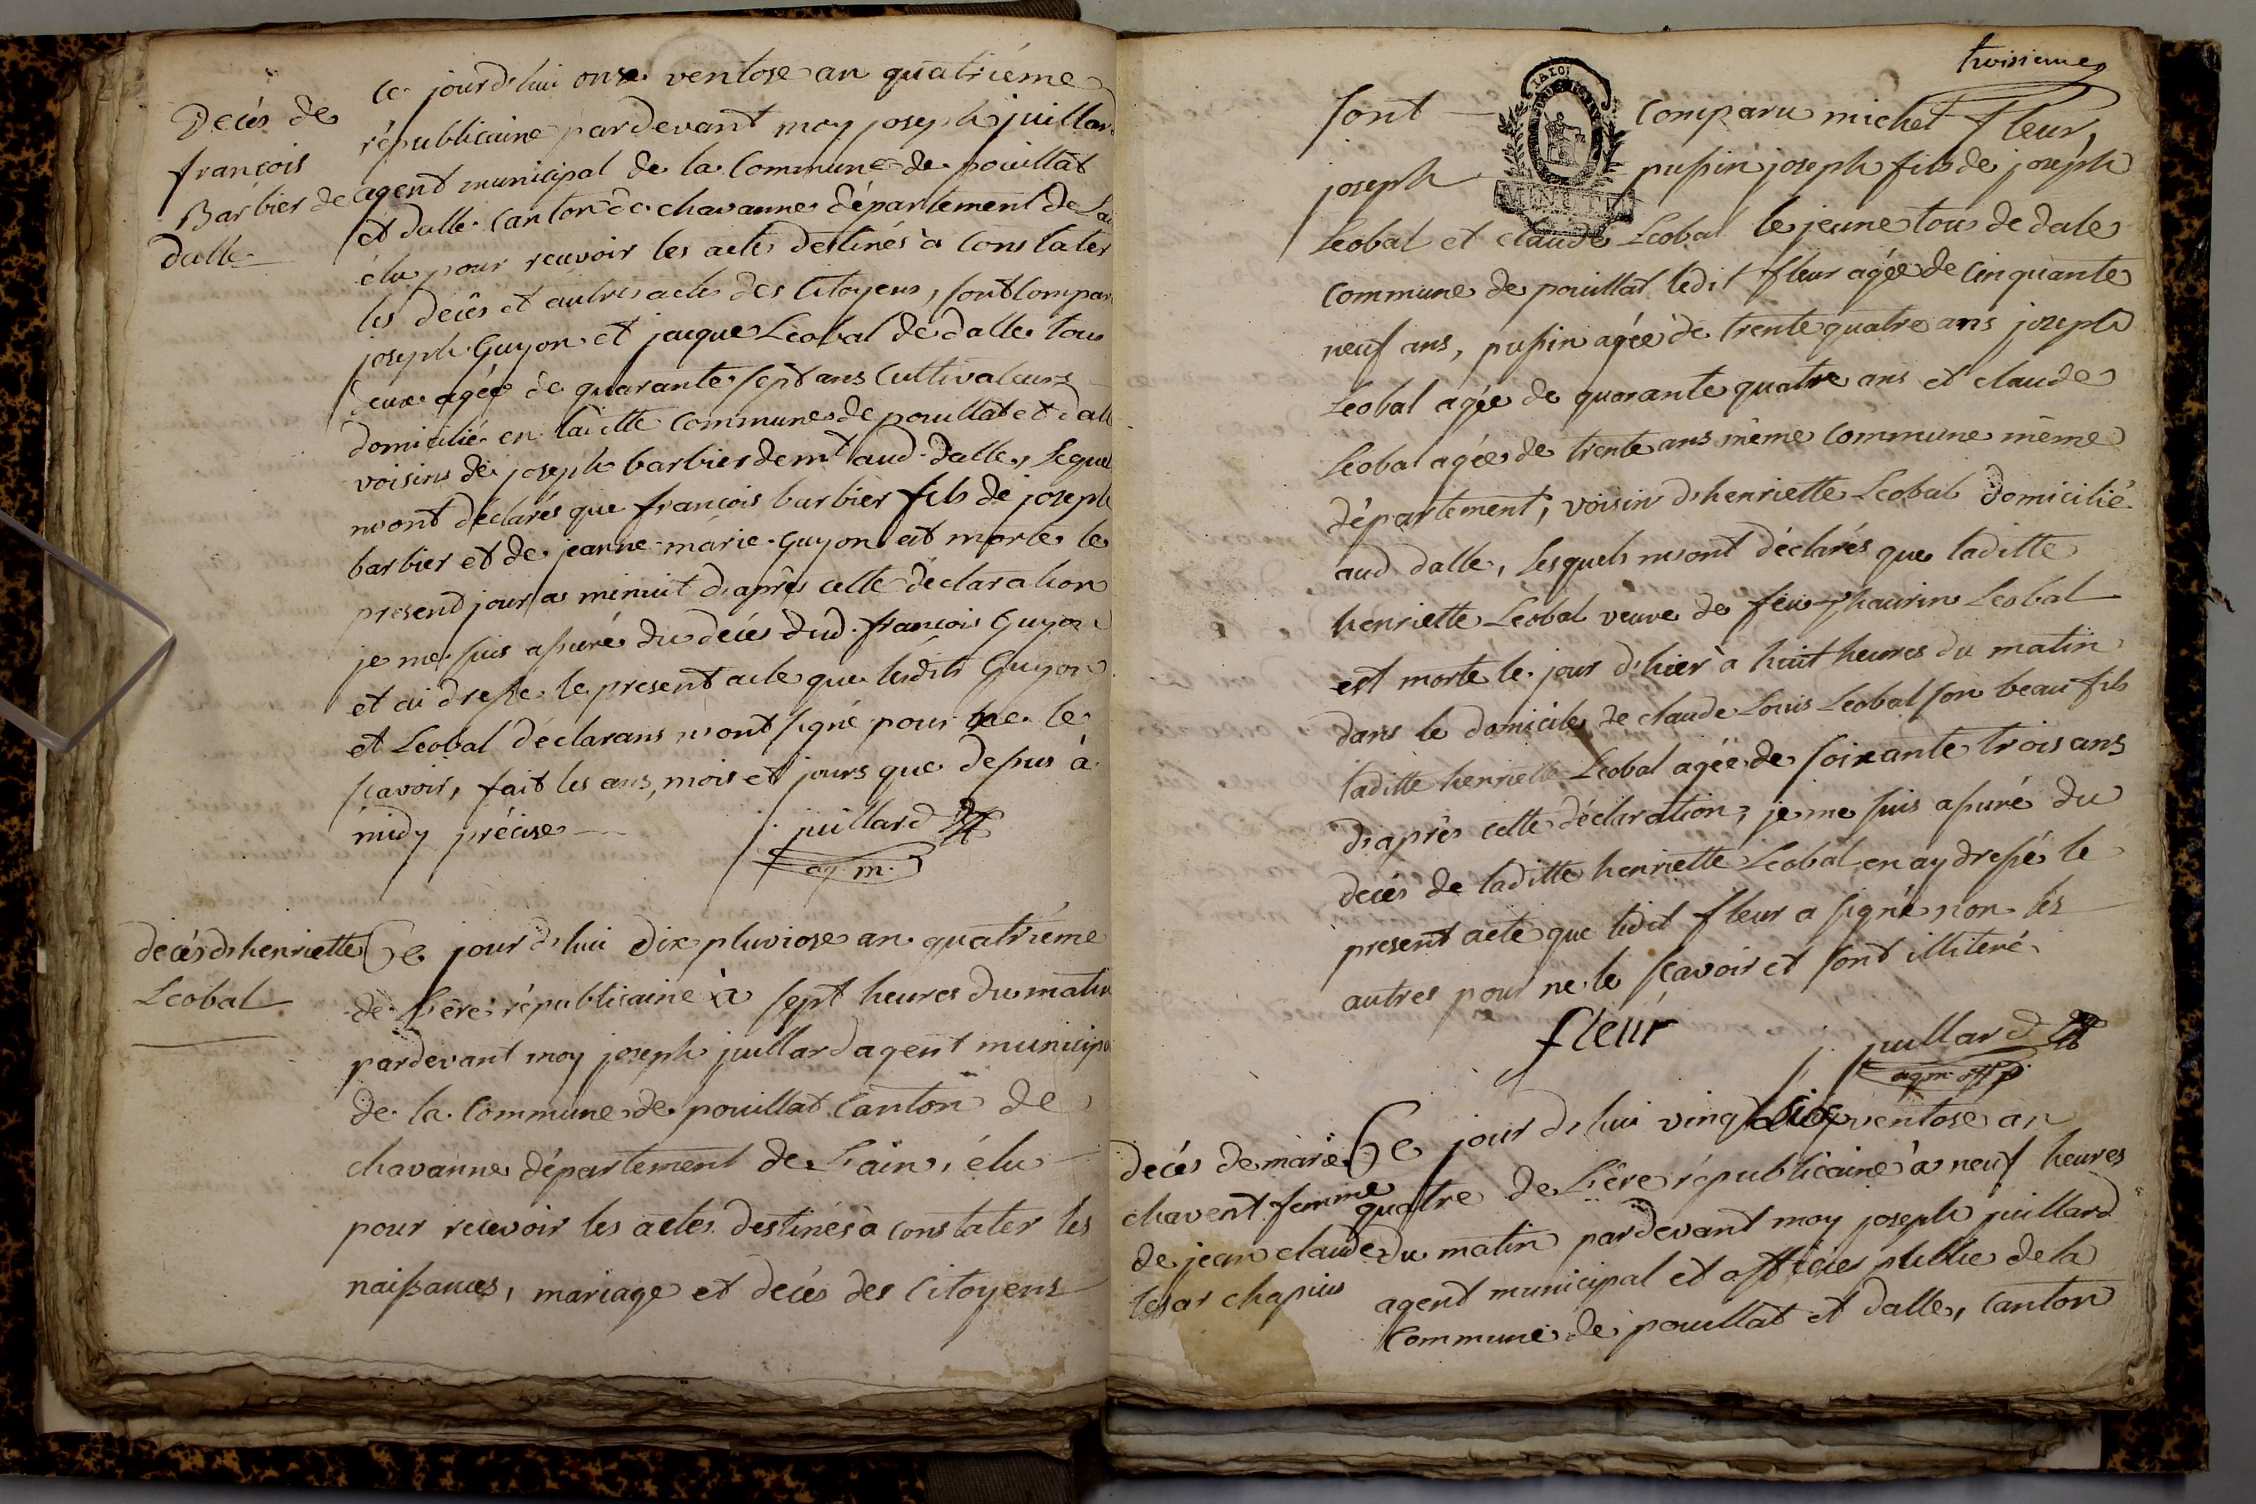 Decés de
françois
Barbier de
dalle
Ce jourd'hui onze ventose an quatriéme
républicaine pardevant moy joseph juillard
agent municipal de la Commune de pouillat
et dalle Canton de chavanne département de Lai
élu pour recevoir les acte destinés à Constater
les decês et autres acte des Citoyens, sont Compar
joseph Guyon et jacque Léobal de dalle tous
deux agée de quarante sept ans Cultivateurs
domicilié en laditte Commune de pouillat et dall
voisins de joseph barbier demt aud. dalle, Lequel
m'ont déclarés que françois barbier fils de joseph
barbier et de jeanne marie Guyon est morte le
present jour a minuit d'après cette déclaration
je me suis assuré du decés dud. françois Guyon
et ai dressé le present acte que lesdits Guyon
et Léobal déclarans n'ont signé pour ne le
scavoir, fait les ans, mois et jours que dessus à
midy précise
j. juillard
ag. m.
decés d'henriette
Leobal
Ce jour d'hui dix pluviose an quatriéme
de L'êre républicaine à sept heures du matin
pardevant moy joseph juillard agent municipa
de la Commune de pouillat Canton de
chavanne département de L'ain, élu
pour recevoir les actes destinés à constater les
naissances, mariage et decés des Citoyens
troisieme
sont comparu michel fleur,
joseph pussin joseph fils de joseph
Leobal et claude Leobal le jeune tous de dale
commune de pouillat ledit fleur agée de Cinquante
neuf ans, pussin agée de trente quatre ans joseph
Leobal agée de quarante quatre ans et claude
Leobal agée de trente ans même Commune même
département, voisin d'henriette Leobal domicilié
aud. dalle, Lesquels m'ont déclarés que laditte
henriette Leobal veuve de feu Leobal
est morte le jour d'hier à huit heures du matin
dans le domicile de claude Louis Leobal son beau fils
laditte henriette Leobal agée de soixante trois ans
d'après cette déclaration, je me suis assuré du
decés de laditte henriette Leobal en ay dressé le
present acte que ledit fleur a signé non les
autres pour ne le scavoir et sont illiteré
fleur
j. juillard
ag. m. off p
decés de marie
chavent femme
de jean claude
chapuis
Ce jour d'hui vingt ventose an
quatre de L'êre républicaine à neuf heures
du matin pardevant moy joseph juillard
agent municipal et officier public de la
Commune de pouillat et dalle, Canton